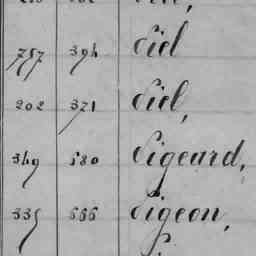 757 394 Piel
202 371 Piel,
349 580 Pigeard,
335 666 Pigeon,